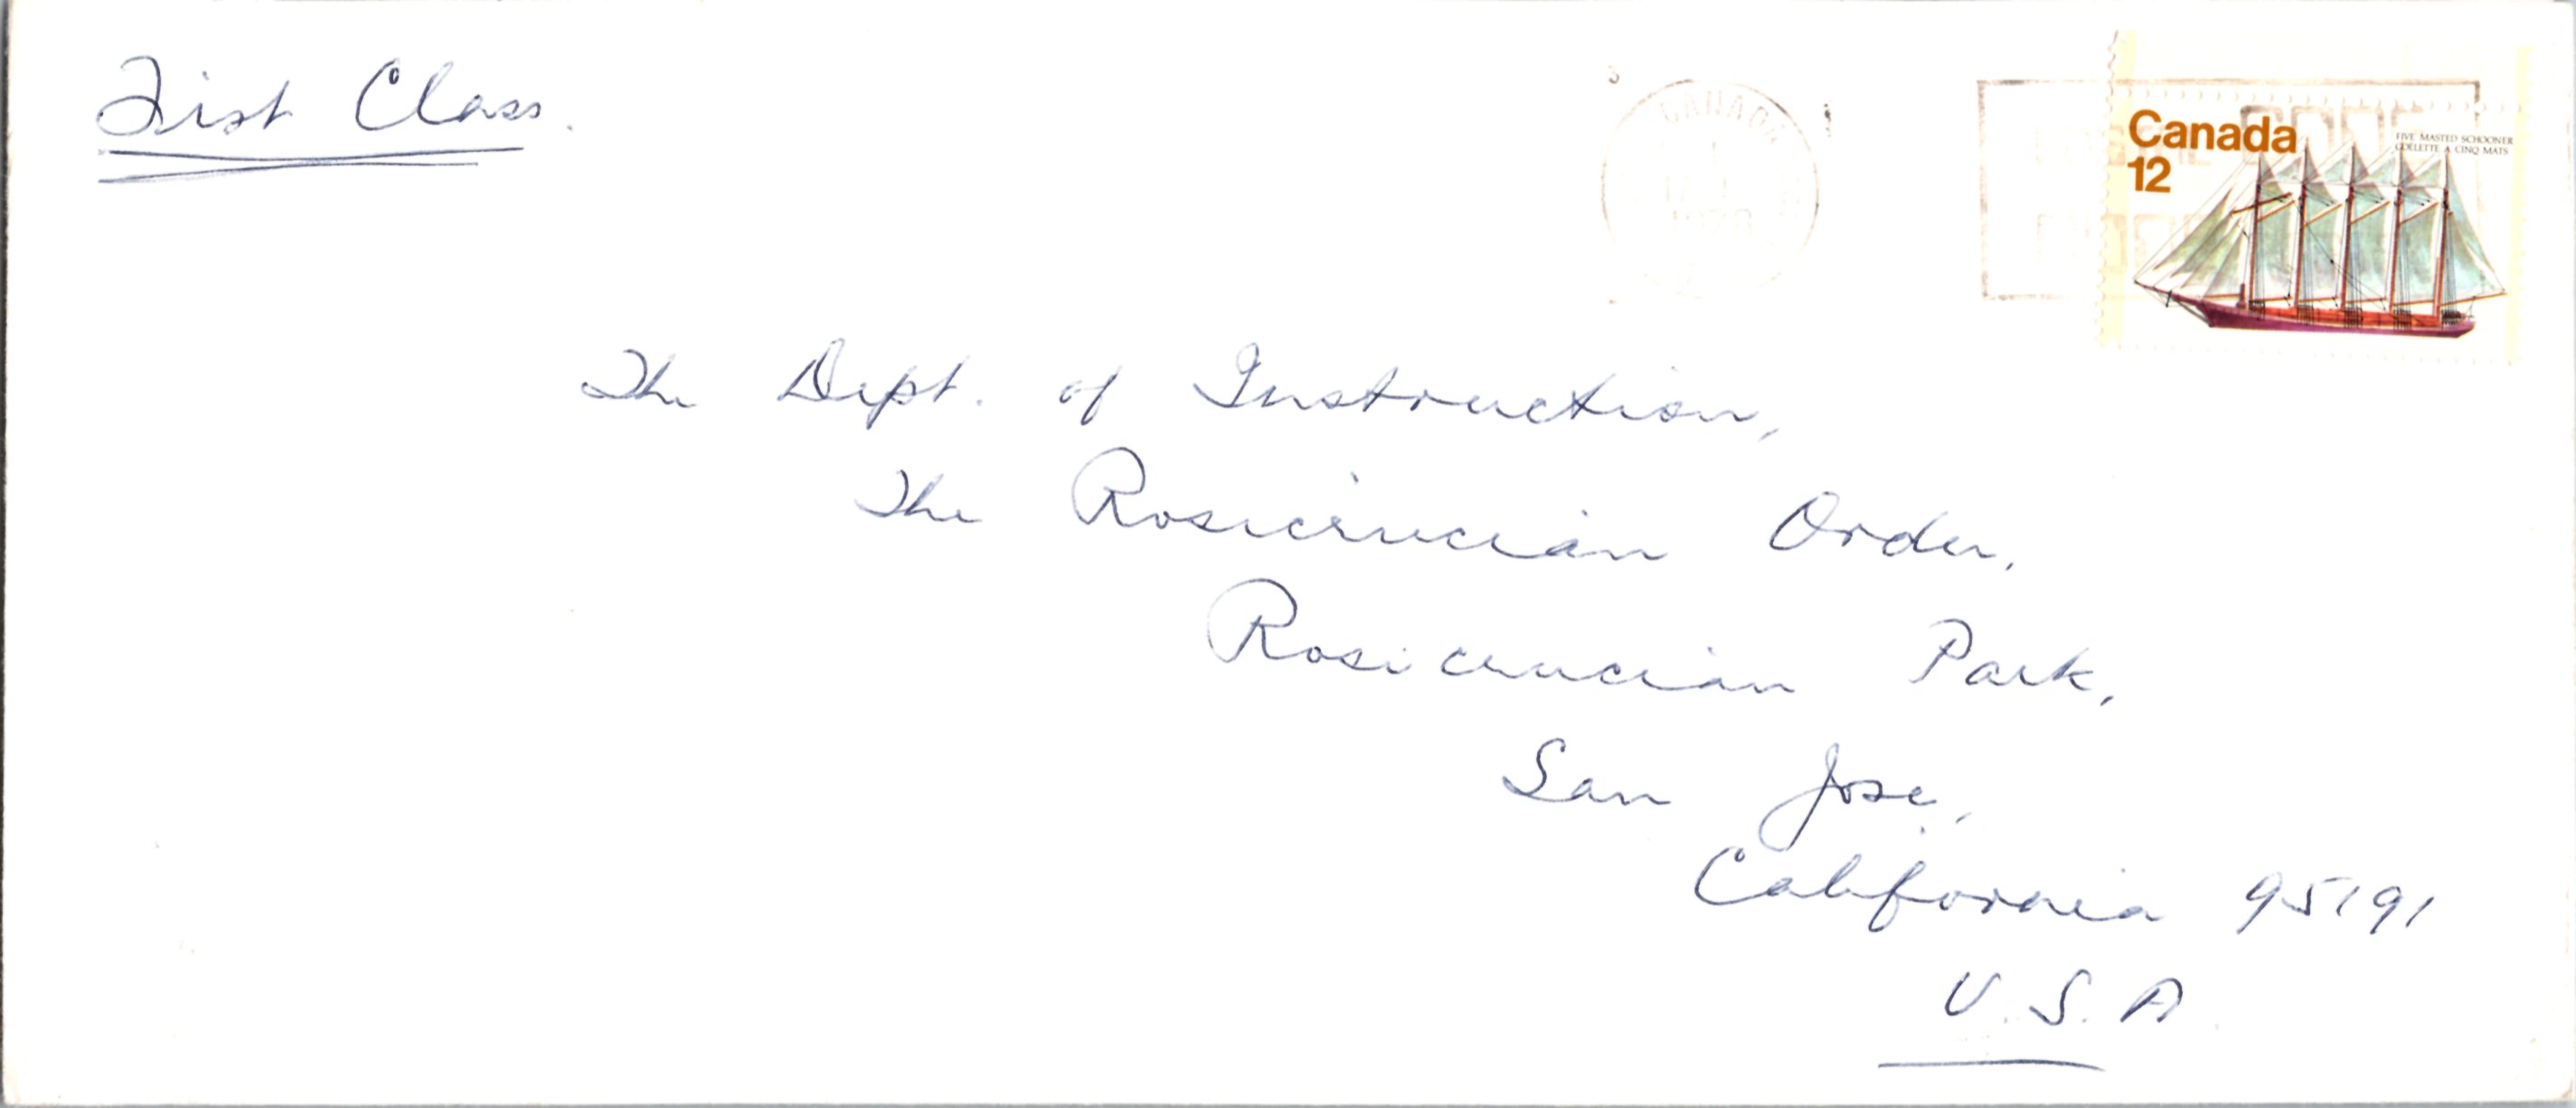 First Class.
CANADA
Canada
12
FIVE MASTED SCHOONER
GOELETTE A CINQ MATS
The Dept. of Instruction,
The Rosicrucian Order,
Rosicrucian Park,
San Jose,
California 95191
U.S.A.